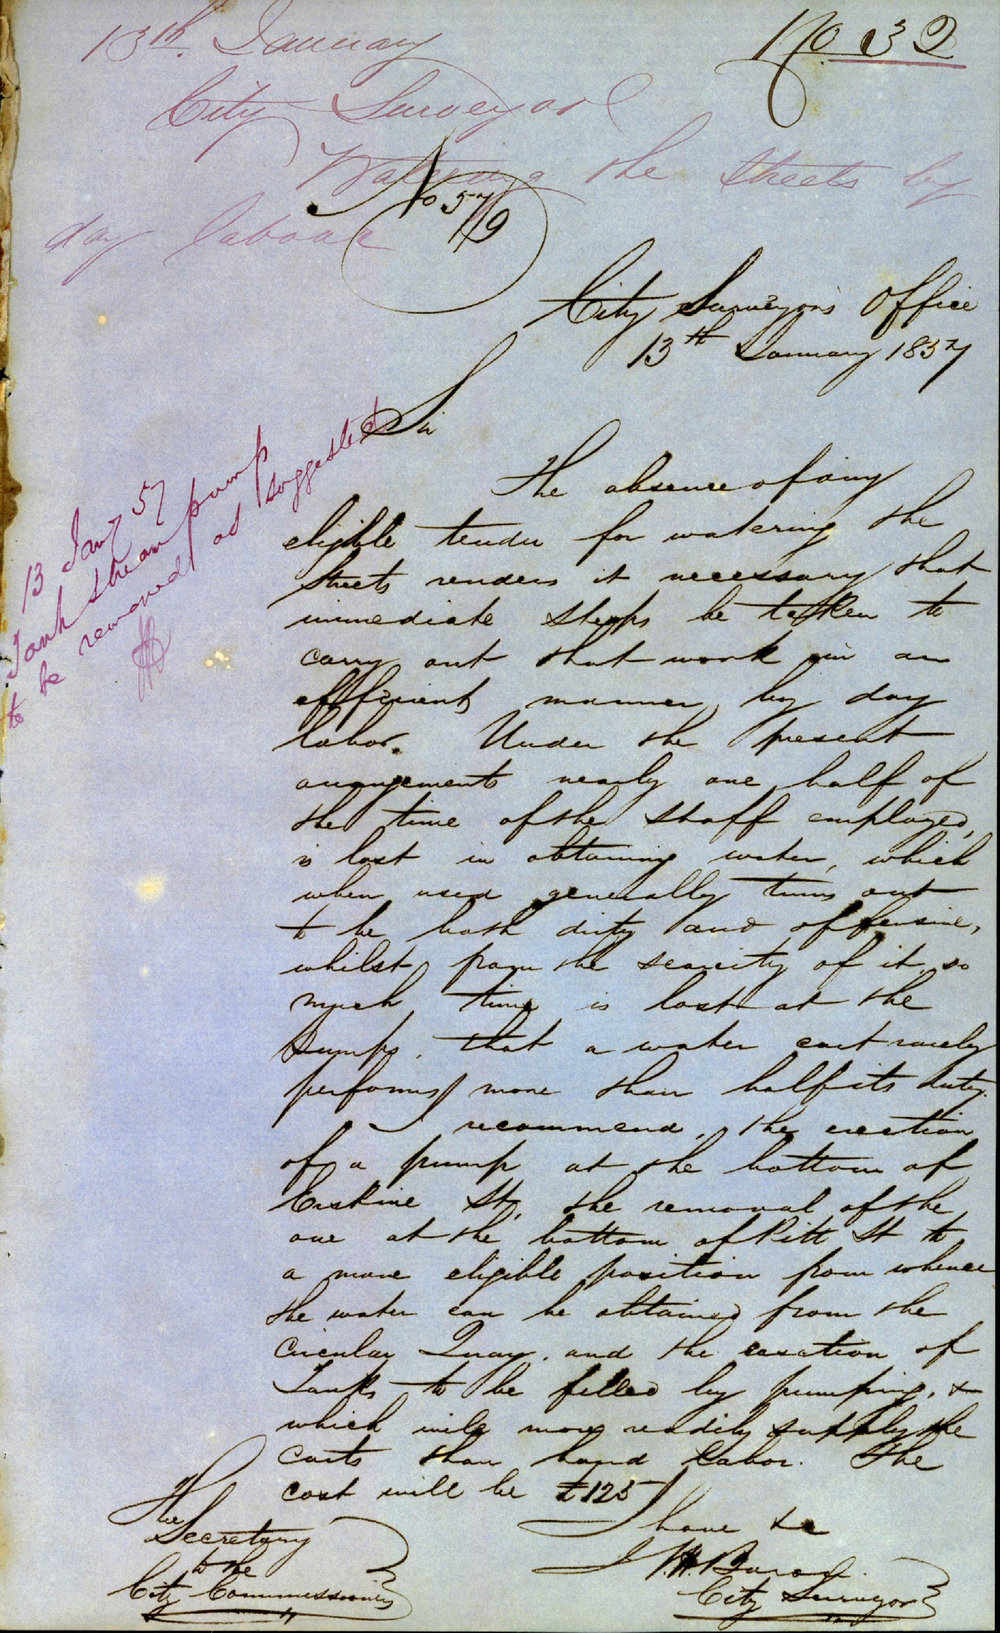 No. 32
13th January
City Surveyor
Watering the Streets by
day labour
No 57/9
City Surveyor's Office
13th January 1857
Sir
The absence of any
eligible tender for watering the
Streets renders it necessary that
immediate steps be taken to
carry out that work in an
efficient manner by day
labor. Under the present
arrangements nearly one half of
the time of the Staff employed,
is lost in obtaining water, which
when used generally turns out
to be both dirty and offensive,
whilst from the scarcity of it so
much time is lost at the
Pumps, that a water cart rarely
performs more than half its duty.
I recommend, the erection
of a pump at the bottom of
Erskine St, the removal of the
one at the bottom of Pitt St to
a more eligible position from whence
the water can be obtained from the
Circular Quay, and the erection of
Tanks to be filled by pumping, &
which will more readily supply the
carts than hand labor. The
cost will be £125
I have &c
City Surveyor
The
Secretary
to the
City Commissioners
13 Jany 57
Tank steam pump
to be removed as suggested